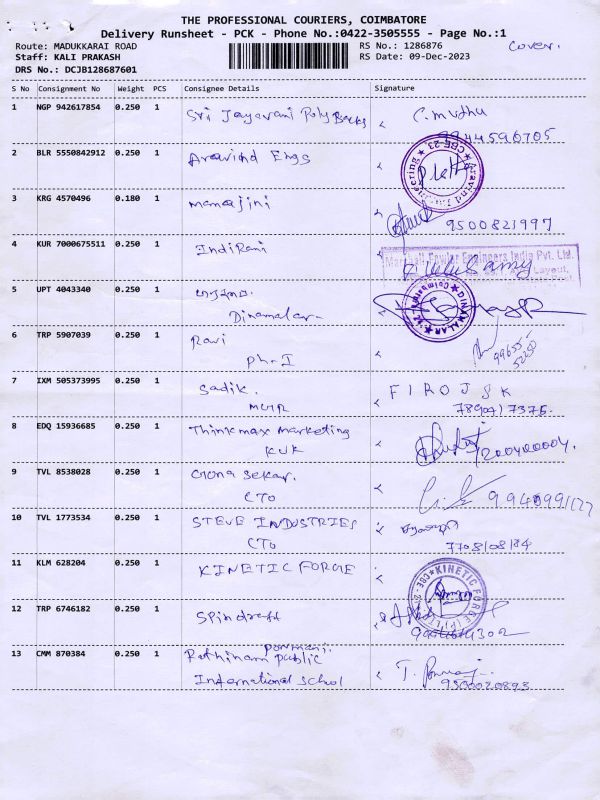 THE PROFESSIONAL COURIERS, COIMBATORE
Delivery Runsheet - PCK - Phone No.:0422-3505555 - Page No.:1
Route: MADUKKARAI ROAD
Staff: KALI PRAKASH
DRS No.: DCJB128687601
RS No.: 1286876
RS Date: 09-Dec-2023
Cover.
S No Consignment No Weight PCS Consignee Details Signature
1 NGP 942617854 0.250 1 Sri Jayavani Poly Backs C. Muthu
9944596705
2 BLR 5550842912 0.250 1 Aravind Engs
3 KRG 4570496 0.180 1 manajini
9500821997
4 KUR 7000675511 0.250 1 IndiRani
Marshall Fowler Engineers India Pvt. Ltd.
Layout,
5 UPT 4043340 0.250 1
Dinamalar
DINAMALAR
6 TRP 5907039 0.250 1 Ravi
Ph-I
99655
52250
7 IXM 505373995 0.250 1 Sadik.
FIROJ SK
8 EDQ 15936685 0.250 1 Thinkmax marketing
KUK
9 TVL 8538028 0.250 1 Gona Sekar.
CTO
10 TVL 1773534 0.250 1 STEVE INDUSTRIES
CTO
11 KLM 628204 0.250 1 KINETIC FORGE
KINETIC FORGE (P) LTD
12 TRP 6746182 0.250 1 Spindrest
13 CMM 870384 0.250 1 Ponmani.
Rathinam public
International school
9500020893